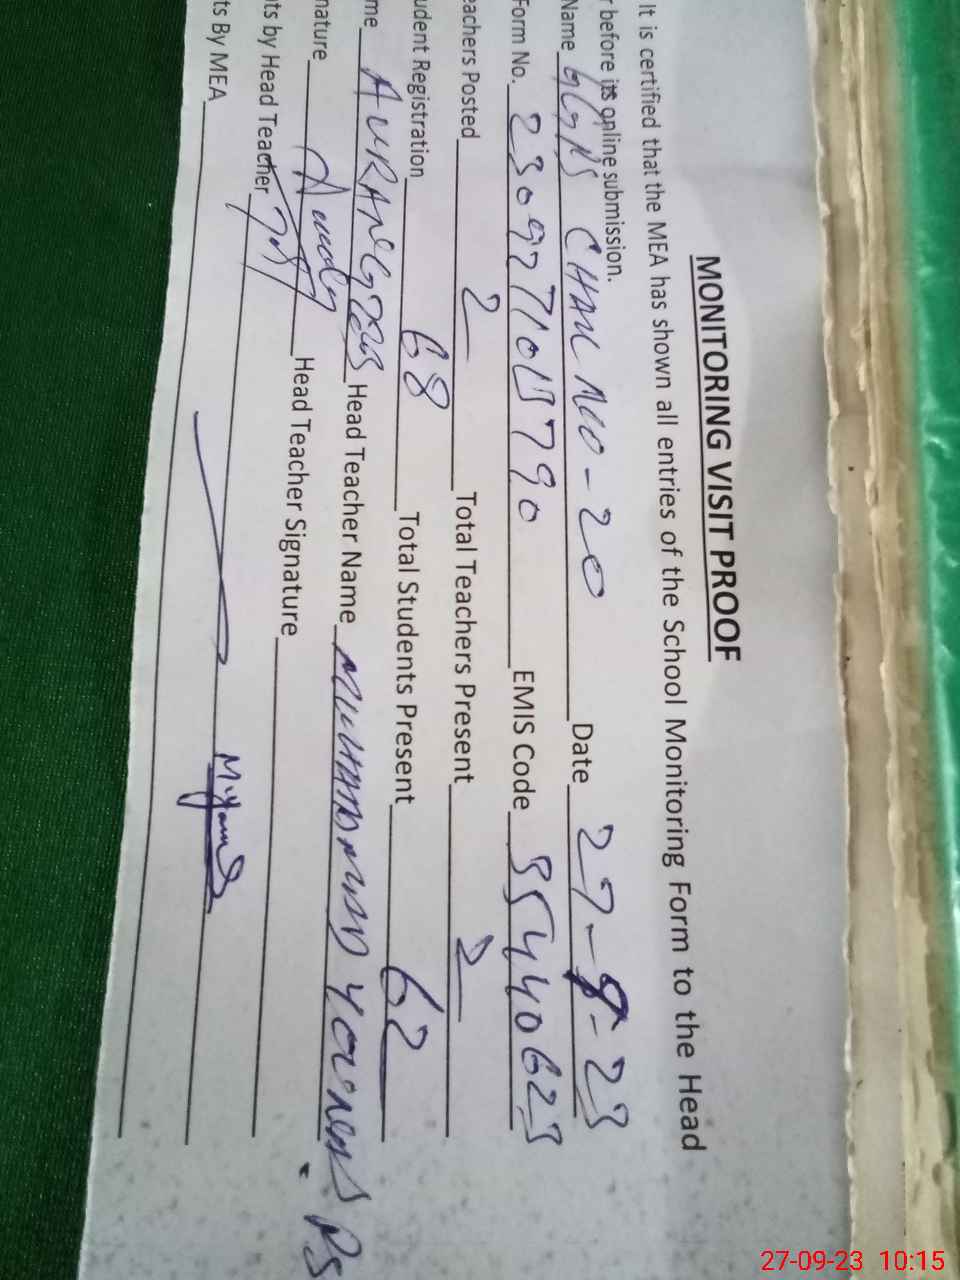 MONITORING VISIT PROOF
It is certified that the MEA has shown all entries of the School Monitoring Form to the Head
r before its online submission.
Name CHAK NO-20 Date 27-9-23
Form No. EMIS Code 35440623
eachers Posted 2 Total Teachers Present 2
udent Registration 68 Total Students Present 62
me AURANGZEB Head Teacher Name MUHAMMAD YOUNAS
nature Head Teacher Signature
ts by Head Teacher
ts By MEA
27-09-23 10:15